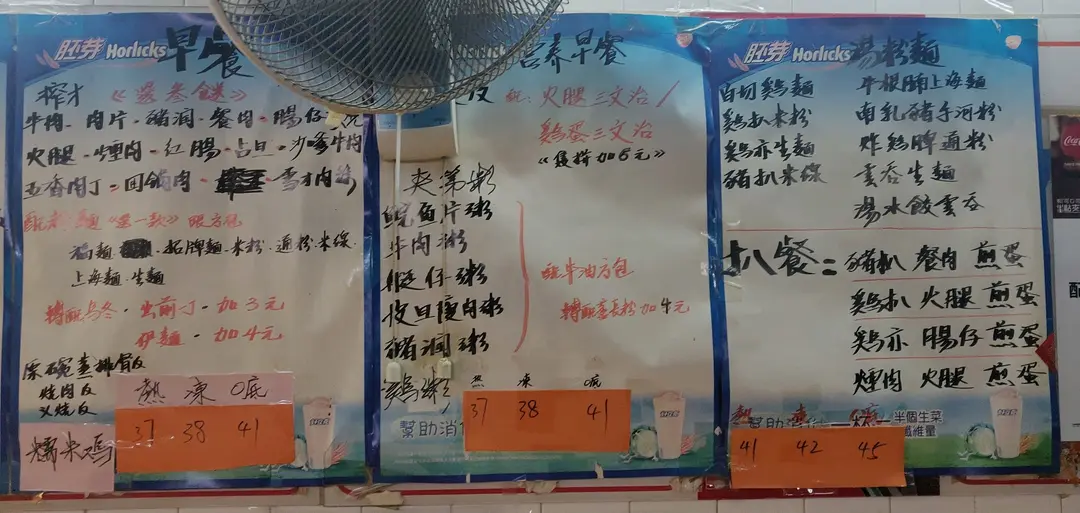 胚芽 Horlicks 早餐
榨才《選叁餸》
牛肉·肉片·豬潤·餐肉·腸仔
火腿·煙肉·紅腸·占旦·沙嗲牛肉
五香肉丁·回鍋肉·雪才肉絲
《選一款》跟方包
招牌麵·米粉·通粉·米線·
上海麵·生麵
轉配烏冬·出前丁·加3元
伊麵·加4元
原碗蒸排骨反
燒肉反
义燒反
糯米鸡
熱 凍 0底
37 38 41
营养早餐
火腿三文治/
鷄蛋三文治
加6元》
鯇魚片粥
牛肉粥
艇仔粥
皮旦瘦肉粥
豬潤粥
鸡粥
牛油方包
轉配加4元
热 凍 0底
37 38 41
幫助消
胚芽 Horlicks 湯粉麵
白切鷄麵
鷄扒米粉
鷄亦生麵
豬扒米線
牛根腩上海麵
南乳豬手河粉
炸鷄脾通粉
雲吞生麵
湯水餃雲吞
扒餐:
豬扒 餐肉 煎蛋
鷄扒 火腿 煎蛋
鷄亦 腸仔 煎蛋
煙肉 火腿 煎蛋
幫助消 一杯=半個生菜
纖維量
41 42 45